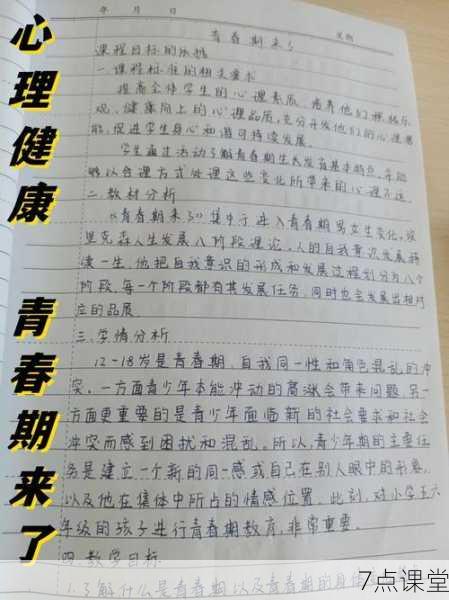 心理健康 青春期来了
年 月 日
青春期来了
课程目标的依据
一.课程标准的相关要求
提高全体学生的心理素质,培养他们积极乐
观、健康向上的心理品质,充分开发他们的心理潜
能,促进学生身心和谐可持续发展。
学生通过活动了解青春期生长发育基本特点,并能
够以合理方式处理这些变化所带来的心理不适
二.教材分析
《青春期来了》集中于进入青春期男女生变化,埃
里克森人生发展八阶段理论,人的自我意识发展持
续一生,他把自我意识的形成和发展过程划分为八个
阶段,每一个阶段都有其发展任务,同时也会发展出相对
应的品质
三.学情分析
12-18岁是青春期,自我同一性和角色混乱的冲
突。一方面青少年本能冲动的高涨会带来问题,另一
方面更重要的是青少年面临新的社会要求和社会
冲突而感到困扰和混乱。所以,青少年期的主要任
务是建立一个新的同一感或自己在别人眼中的形象,
以及他在集体中所占的情感位置。此刻,对小学五六
年级的孩子进行青春期教育,非常重要。
四.教学目标
1.了解什么是青春期以及青春期的身体
7点课堂